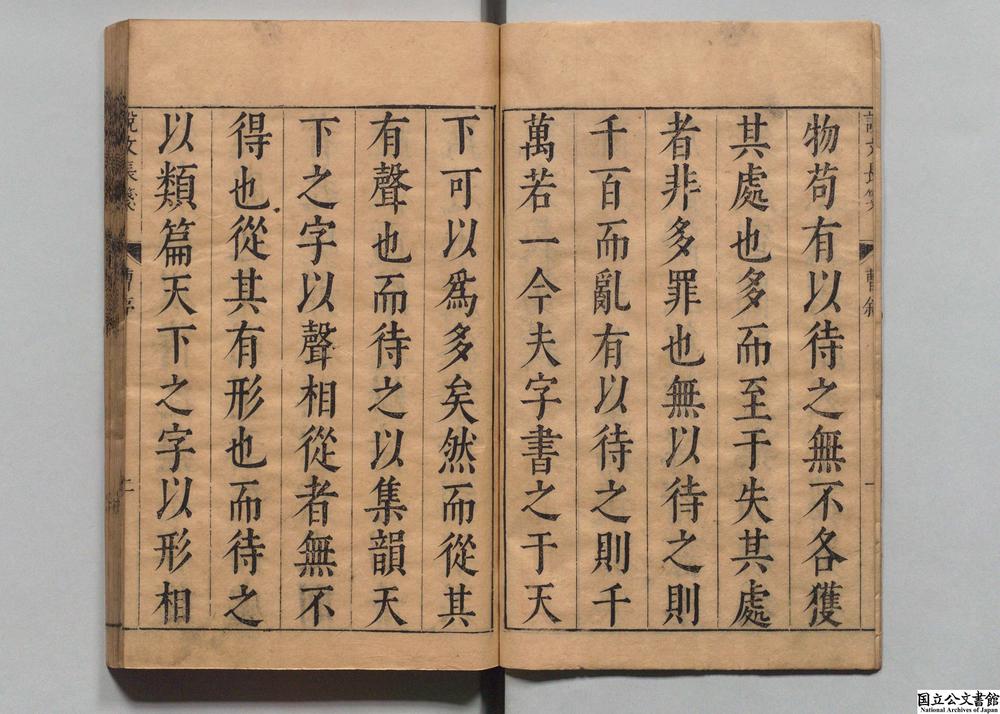 物苟有以待之無不各獲
其處也多而至于失其處
者非多罪也無以待之則
千百而亂有以待之則千
萬若一今夫字書之于天
下可以爲多矣然而從其
有聲也而待之以集韻天
下之字以聲相從者無不
得也從其有形也而待之
以類篇天下之字以形相
說文長箋
二
國立公文書館
National Archives of Japan